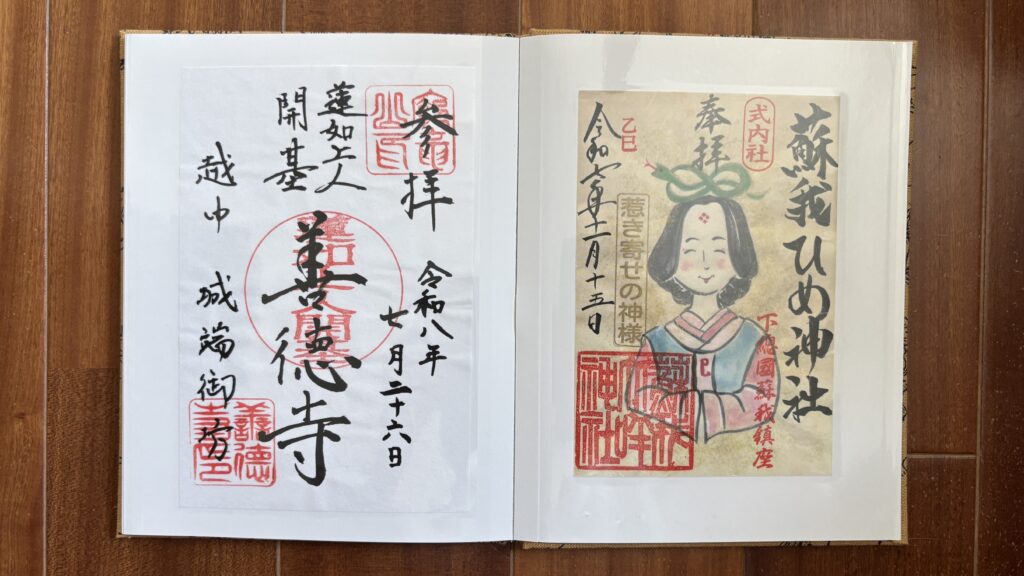 参拝
令和八年
七月二十六日
蓮如上人
開基
善徳寺
越中 城端御坊
善徳
蘇我ひめ神社
式内社
奉拝
下総國蘇我鎮座
巳
惹き寄せの神様
乙巳
令和七年十一月十五日
神社